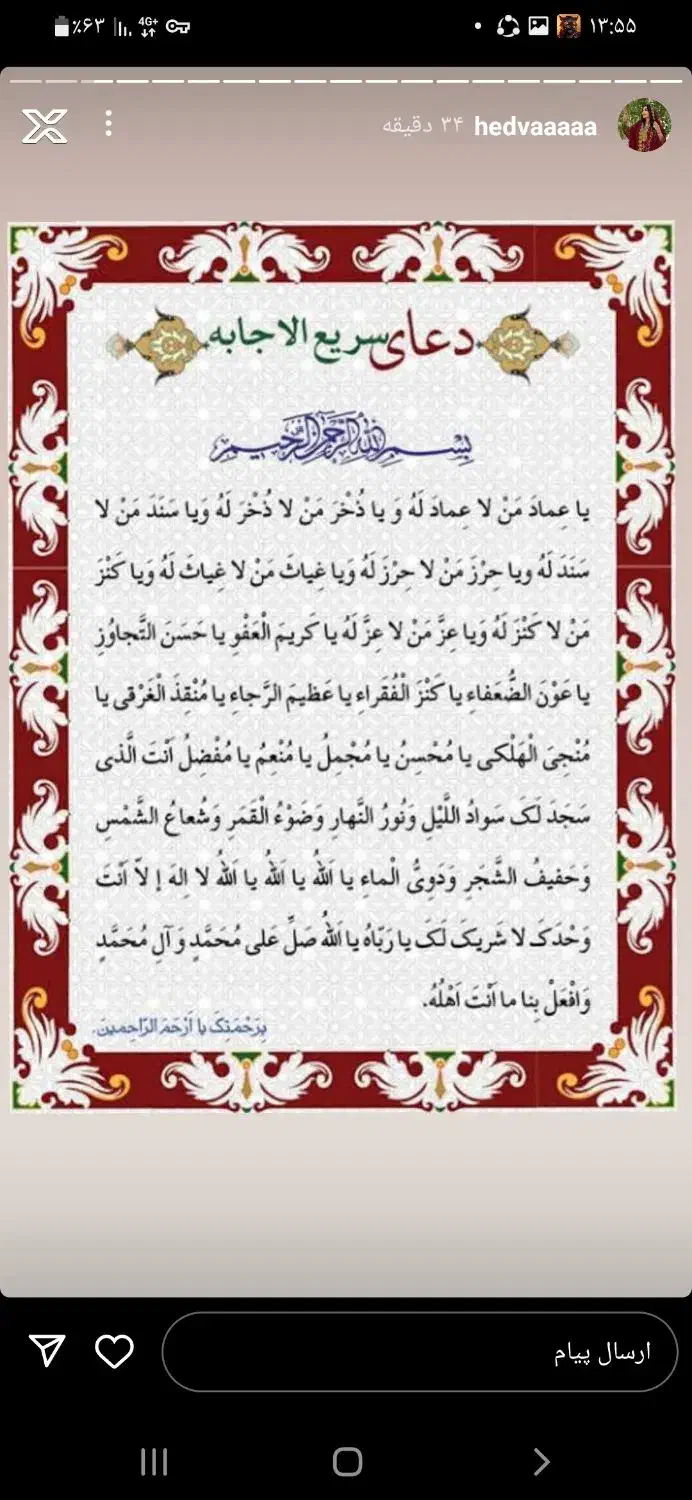 ۱۳:۵۵
4G+
٪۶۳
hedvaaaaa ۳۴ دقیقه
دعای سریع الاجابه
بِسْمِ اللهِ الرَّحْمنِ الرَّحیمِ
یا عِمادَ مَنْ لا عِمادَ لَهُ وَ یا ذُخْرَ مَنْ لا ذُخْرَ لَهُ وَیا سَنَدَ مَنْ لا
سَنَدَ لَهُ ویا حِرْزَ مَنْ لا حِرْزَ لَهُ وَیا غِیاثَ مَنْ لا غِیاثَ لَهُ وَیا کَنْزَ
مَنْ لا کَنْزَ لَهُ وَیا عِزَّ مَنْ لا عِزَّ لَهُ یا کَریمَ الْعَفْوِ یا حَسَنَ التَّجاوُزِ
یا عَوْنَ الضُّعَفاءِ یا کَنْزَ الْفُقَراءِ یا عَظیمَ الرَّجاءِ یا مُنْقِذَ الْغَرْقی یا
مُنْجِیَ الْهَلْکی یا مُحْسِنُ یا مُجْمِلُ یا مُنْعِمُ یا مُفْضِلُ اَنْتَ الَّذی
سَجَدَ لَکَ سَوادُ اللَّیْلِ وَنُورُ النَّهارِ وَضَوْءُ الْقَمَرِ وَشُعاعُ الشَّمْسِ
وَحَفیفُ الشَّجَرِ وَدَوِیُّ الْماءِ یا اَللهُ یا اَللهُ یا اَللهُ لا اِلهَ إلاّ اَنْتَ
وَحْدَکَ لا شَریکَ لَکَ یا رَبّاهُ یا اَللهُ صَلِّ عَلی مُحَمَّدٍ وَ آلِ مُحَمَّدٍ
وَافْعَلْ بِنا ما اَنْتَ اَهْلُهُ.
بِرَحْمَتِکَ یا اَرْحَمَ الرّاحِمینَ.
ارسال پیام